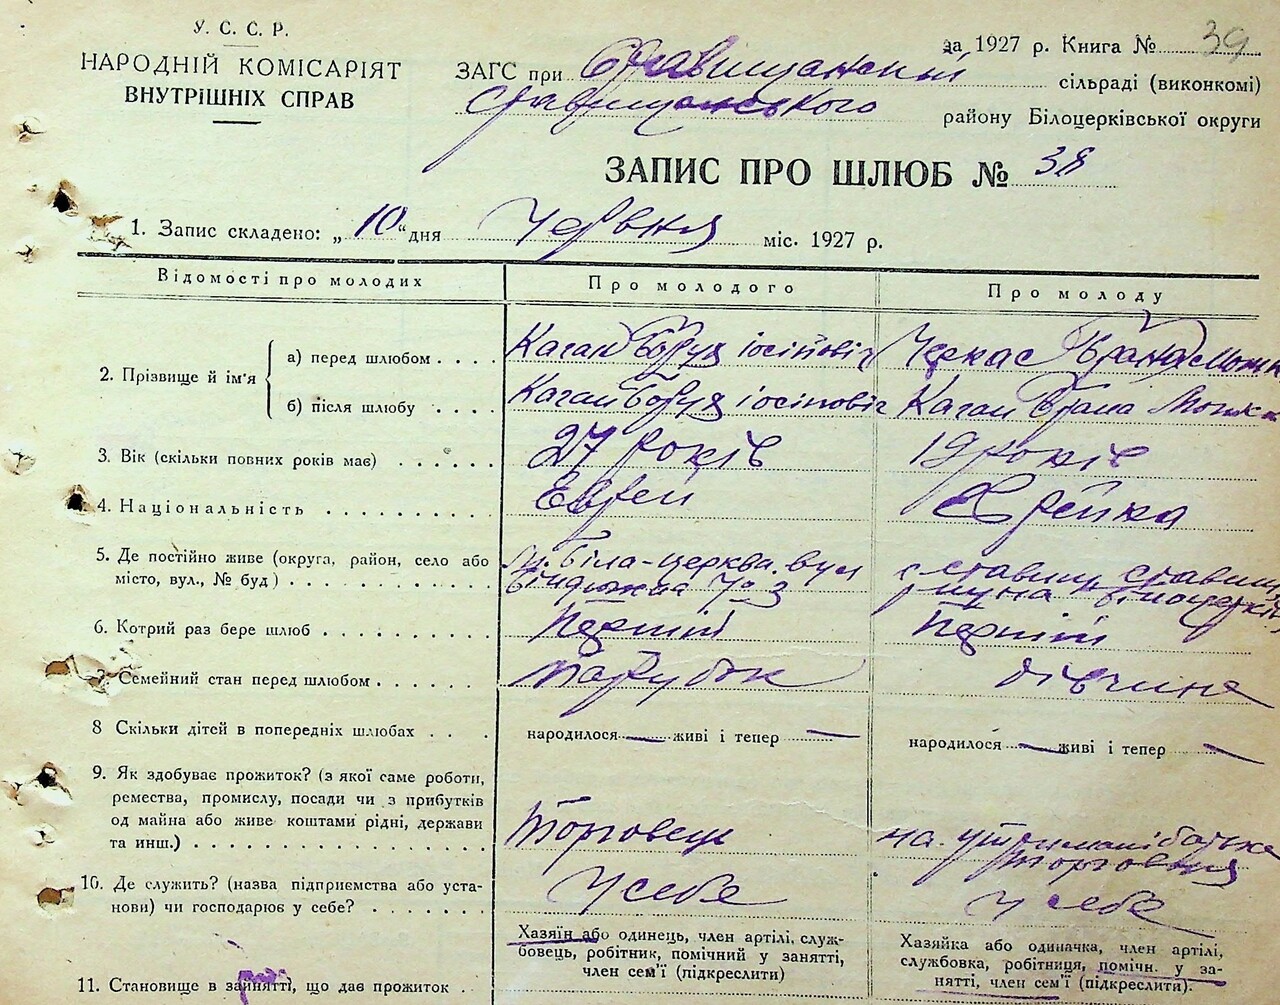 У. С. С. Р.
НАРОДНІЙ КОМІСАРІЯТ
ВНУТРІШНІХ СПРАВ
за 1927 р. Книга № 39
ЗАГС при Ставищанскій сільраді (виконкомі)
Ставищанського району Білоцерківської округи
ЗАПИС ПРО ШЛЮБ № 38
1. Запис складено: „10“ дня Червня міс. 1927 р.
Відомості про молодих Про молодого Про молоду
2. Прізвище й ім'я
а) перед шлюбом . . . . Каган Борух іосіповіч Черкас Брана Мошк
б) після шлюбу . . . . Каган Борух іосіповіч Каган Брана Мошк
3. Вік (скільки повних років має) . . . . . . 27 років 19 років
4. Національність . . . . . . . . . . Еврей Еврейка
5. Де постійно живе (округа, район, село або м. Біла-церква. вул с Ставищ Ставищ
місто, вул., № буд) . . . . . . . . . . № 3
6. Котрий раз бере шлюб . . . . . . . . . . Перший Перший
7. Семейний стан перед шлюбом . . . . . . парубок дівчина
8 Скільки дітей в попередніх шлюбах . . . народилося — живі і тепер — народилося — живі і тепер —
9. Як здобуває прожиток? (з якої саме роботи,
ремества, промислу, посади чи з прибутків
од майна або живе коштами рідні, держави Торговець на утримані батька
та инш.) . . . . . . . . . . . . . . . . торговця
10. Де служить? (назва підприємства або уста- У себе У себе
нови) чи господарює у себе? . . . . . . .
Хазяїн або одинець, член артілі, служ- Хазяйка або одиначка, член артілі,
бовець, робітник, помічний у занятті, службовка, робітниця, помічн. у за-
член сем'ї (підкреслити) нятті, член сем'ї (підкреслити).
11. Становище в занятті, що дає прожиток .